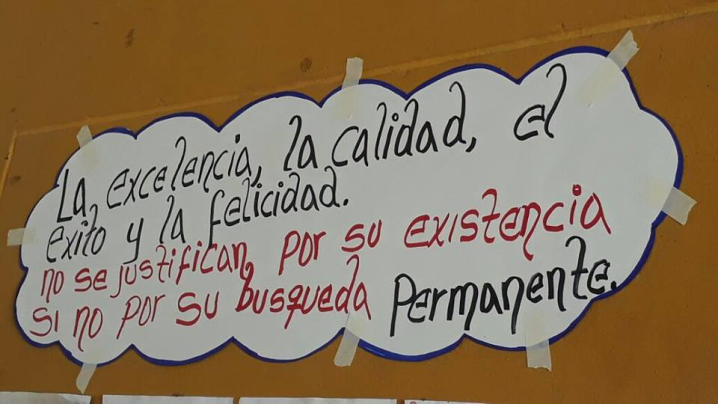 La excelencia, la calidad, el
exito y la felicidad.
no se justifican por su existencia
si no por su busqueda permanente.